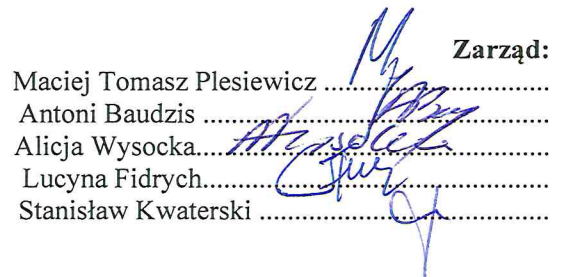 Zarząd:
Maciej Tomasz Plesiewicz ..............................
Antoni Baudzis ..............................................
Alicja Wysocka..............................................
Lucyna Fidrych..............................................
Stanisław Kwaterski .......................................